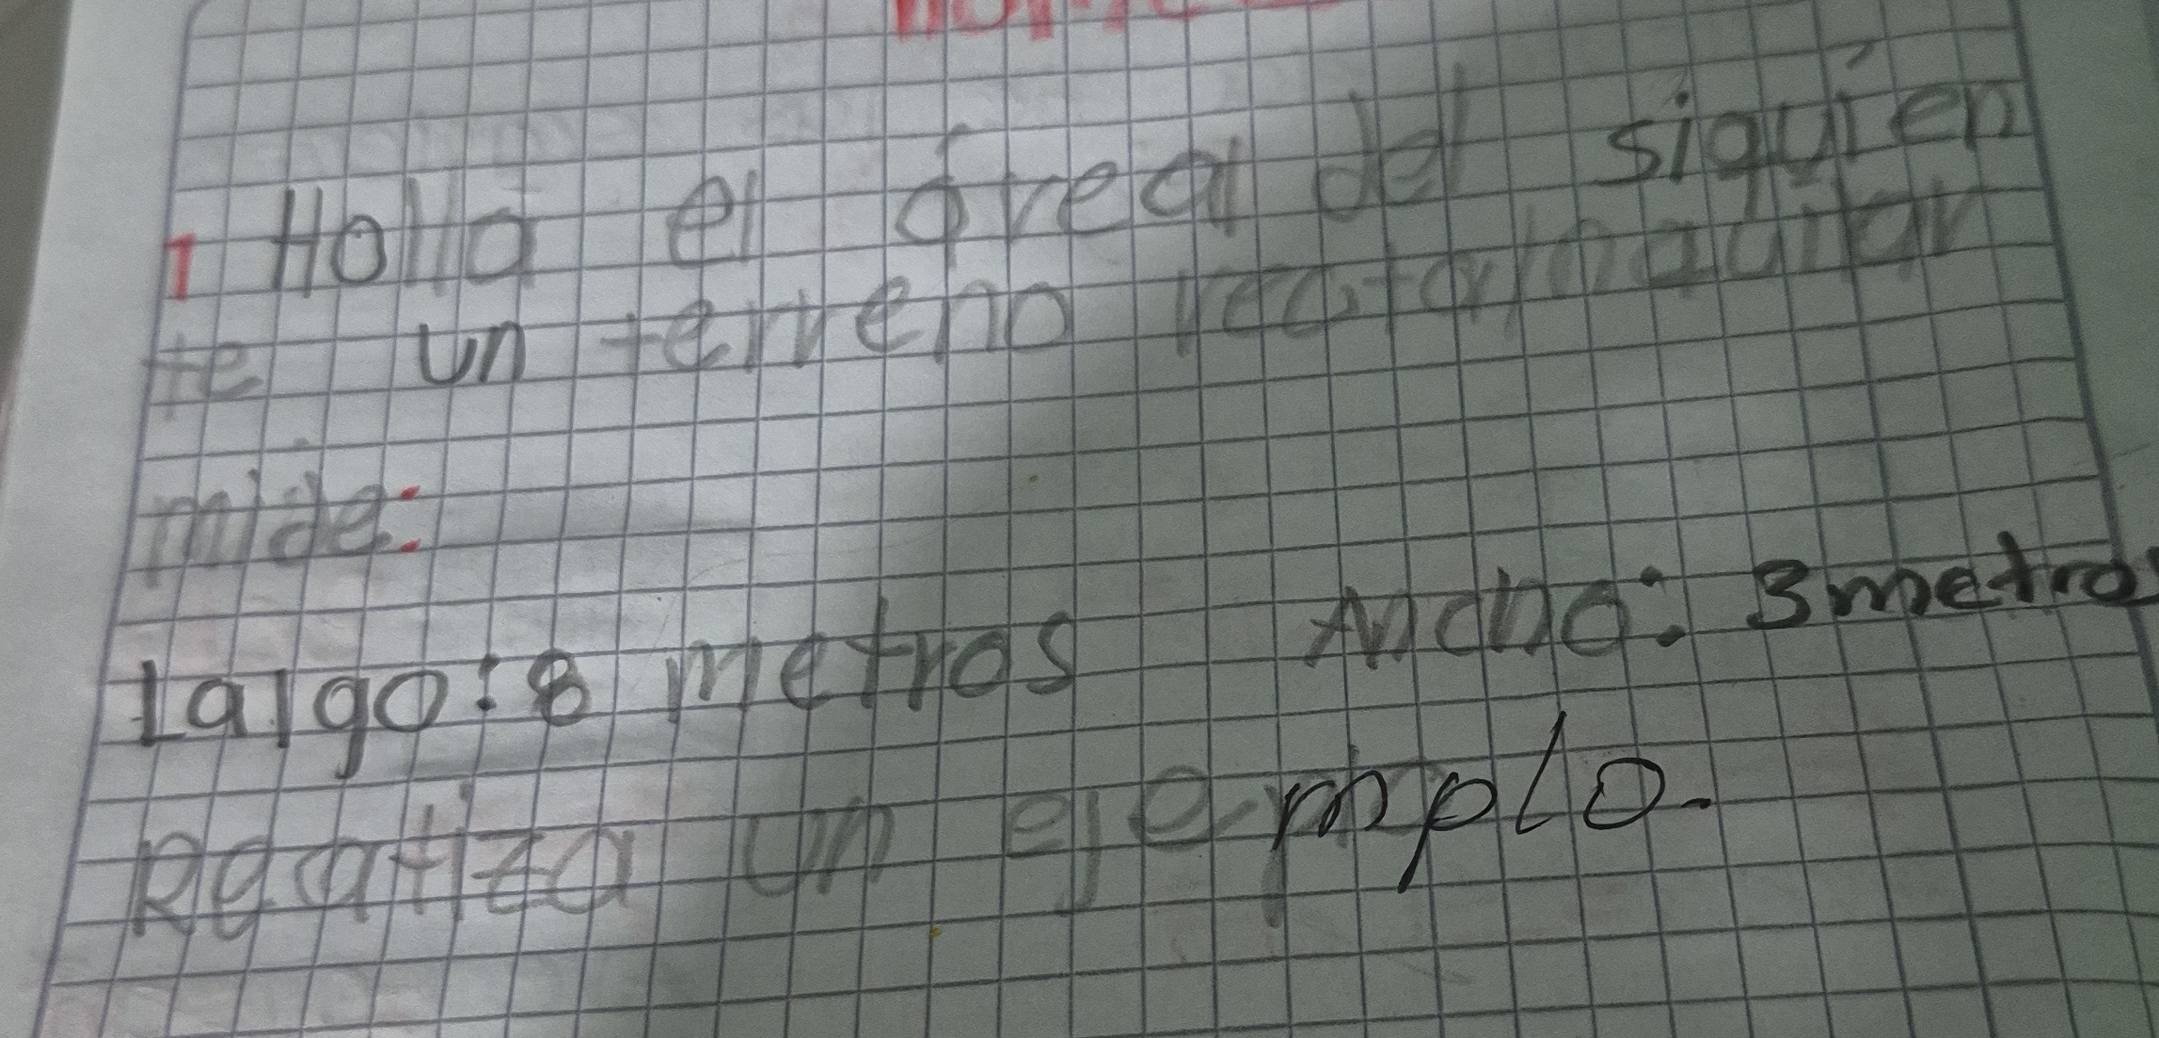 1 Halla el área del siguien
te un terreno rectangular
mide:
Largo: 8 metros Ancho: 3 metros
Realiza un ejemplo.